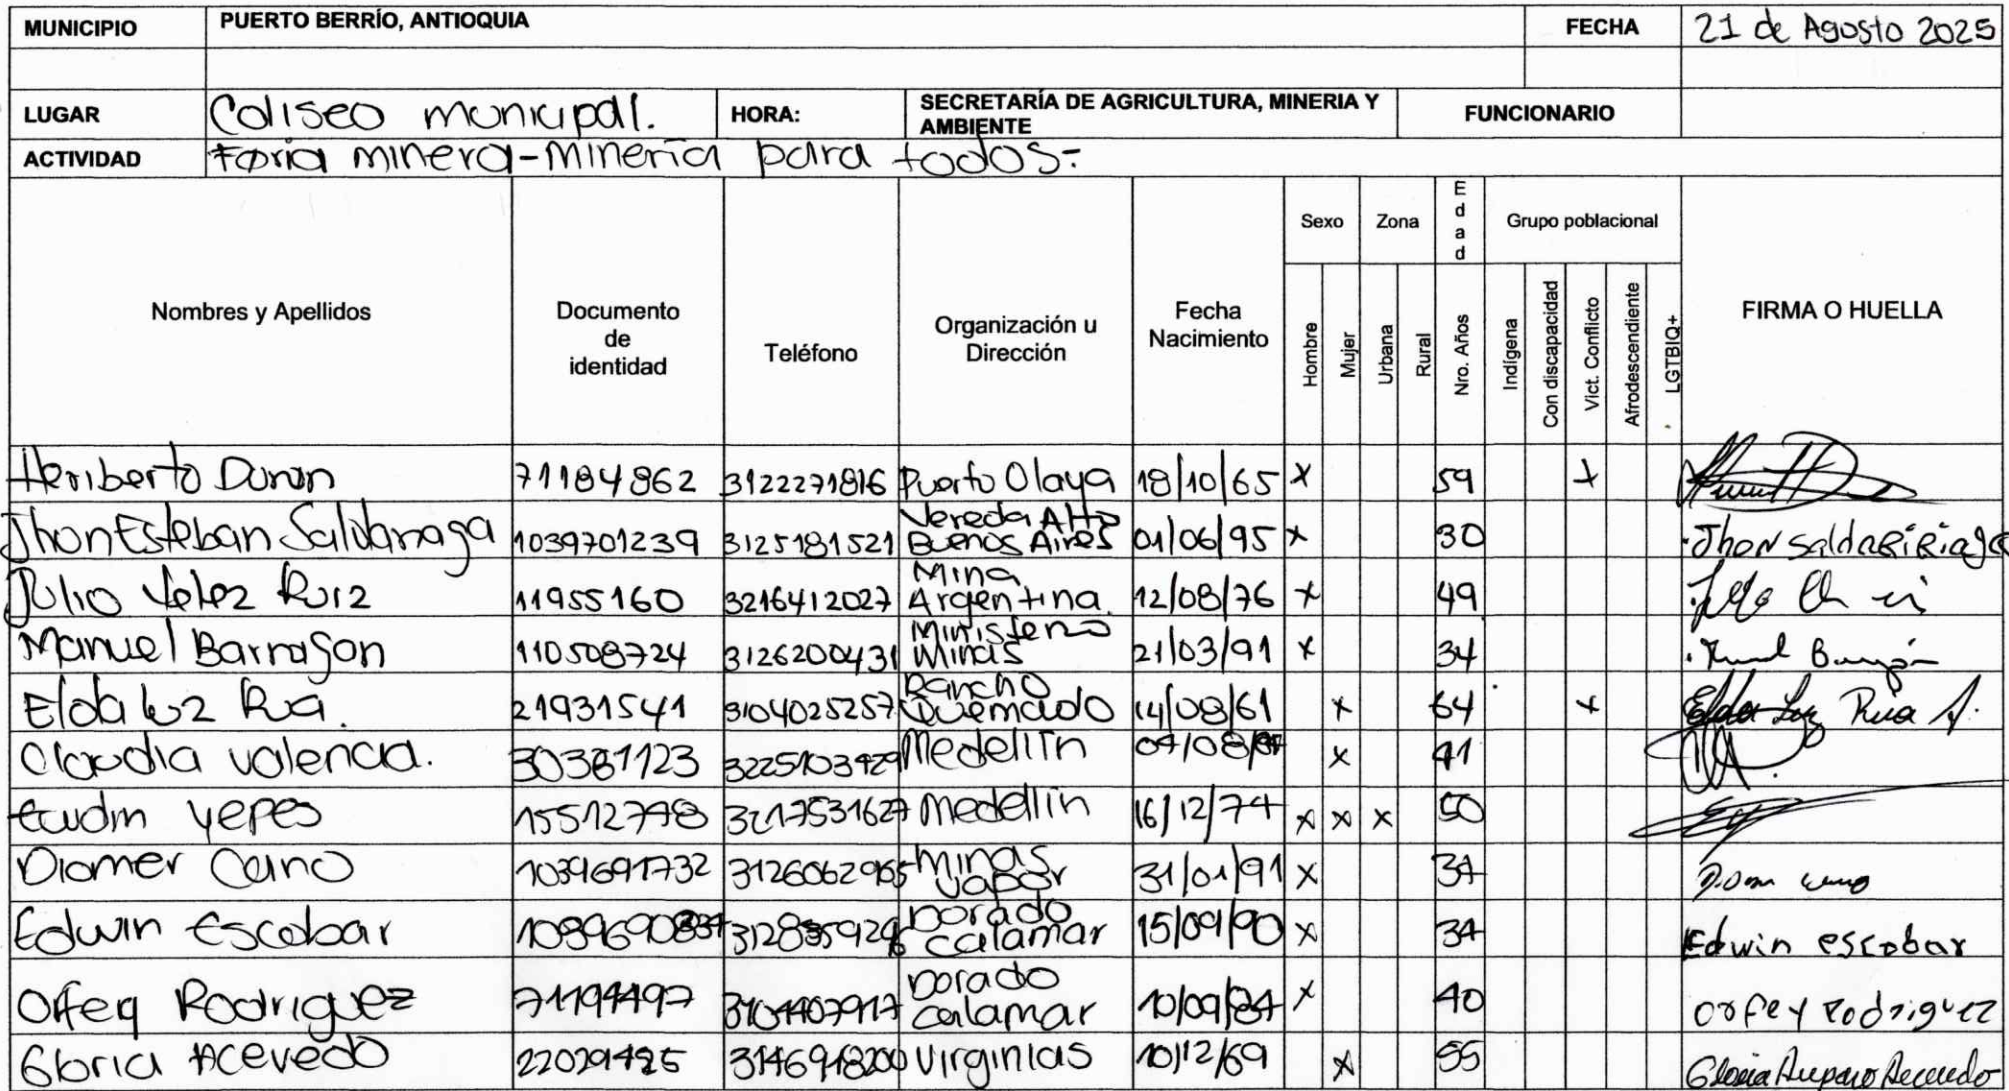 MUNICIPIO PUERTO BERRÍO, ANTIOQUIA FECHA 21 de Agosto 2025
LUGAR Coliseo municipal. HORA: SECRETARÍA DE AGRICULTURA, MINERIA Y AMBIENTE FUNCIONARIO
ACTIVIDAD Feria minera-Mineria para todos-
Nombres y Apellidos Documento de identidad Teléfono Organización u Dirección Fecha Nacimiento Sexo Hombre Mujer Zona Urbana Rural Edad Nro. Años Grupo poblacional Indígena Con discapacidad Vict. Conflicto Afrodescendiente LGTBIQ+ FIRMA O HUELLA
Heriberto Duran 71184862 3122271816 Puerto Olaya 18/10/65 x 59 x
Jhon Esteban Saldarriaga 1039701239 3125181521 Vereda Alto Buenos Aires 01/06/95 x 30 Jhon saldaRiRiaga
Julio Velez Ruiz 11955160 3216412027 Mina Argentina. 12/08/76 x 49
Manuel Barragan 110508724 3126200431 Ministerio Minas 21/03/91 x 34
Elda luz Rua. 21931541 3104025257 Rancho Quemado 14/08/61 x 64 x Elda Luz Rua A.
Claudia valencia. 30381123 Medellin x 41
yepes 15512798 3217531627 Medellin 16/12/74 x x x 50
Diomer Cano 1039691732 3126062965 minas vapor 31/01/91 x 34
Edwin Escobar Dorado calamar 15/09/90 x 34 Edwin escobar
Orfey Rodriguez 71194497 3104407917 Dorado calamar 10/09/84 x 40 orfey Rodriguez
Gloria Acevedo 22029425 3146918200 virginias 10/12/69 x 55 Gloria Amparo Acevedo